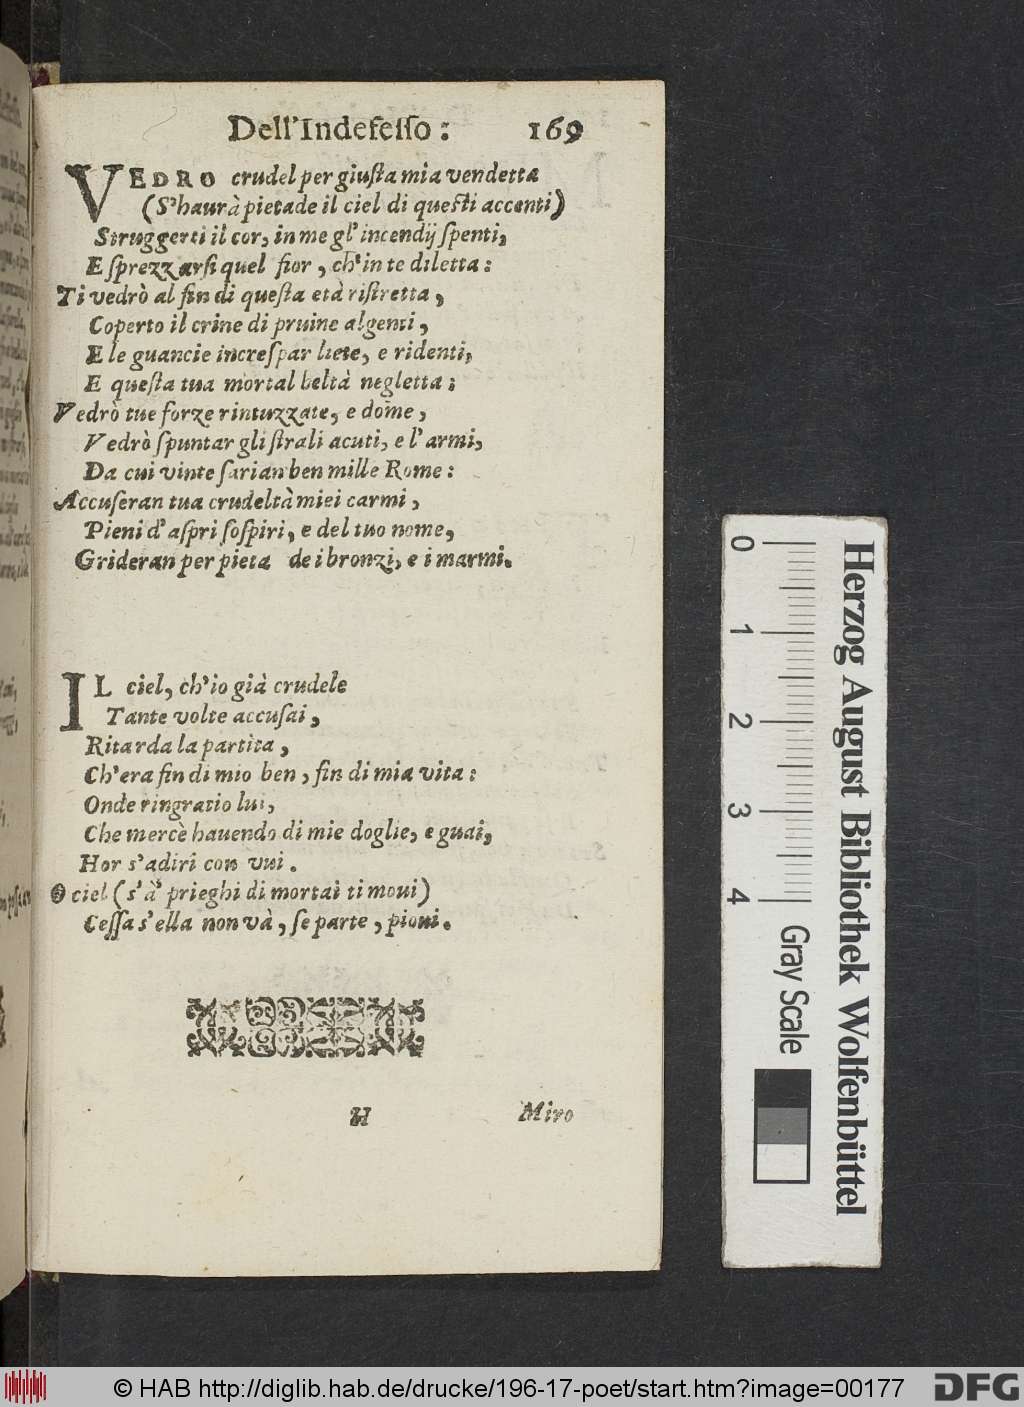 Dell'Indefeſſo: 169
VEDRO crudel per giuſta mia vendetta
(S'haurà pietade il ciel di queſti accenti)
Struggerti il cor, in me gl'incendij ſpenti,
E ſprezzarſi quel fior, ch'in te diletta:
Ti vedrò al fin di queſta età riſtretta,
Coperto il crine di pruine algenti,
E le guancie increſpar liete, e ridenti,
E queſta tua mortal beltà negletta:
Vedrò tue forze rintuzzate, e dome,
Vedrò ſpuntar gli ſtrali acuti, e l'armi,
Da cui vinte ſarian ben mille Rome:
Accuſeran tua crudeltà miei carmi,
Pieni d'aſpri ſoſpiri, e del tuo nome,
Grideran per pieta de i bronzi, e i marmi.
IL ciel, ch'io già crudele
Tante volte accuſai,
Ritarda la partita,
Ch'era fin di mio ben, fin di mia vita:
Onde ringratio lui,
Che mercè hauendo di mie doglie, e guai,
Hor s'adiri con vui.
O ciel (s'à prieghi di mortai ti moui)
Ceſſa s'ella non và, ſe parte, pioui.
H Miro
0 1 2 3 4
Gray Scale
Herzog August Bibliothek Wolfenbüttel
© HAB http://diglib.hab.de/drucke/196-17-poet/start.htm?image=00177
DFG